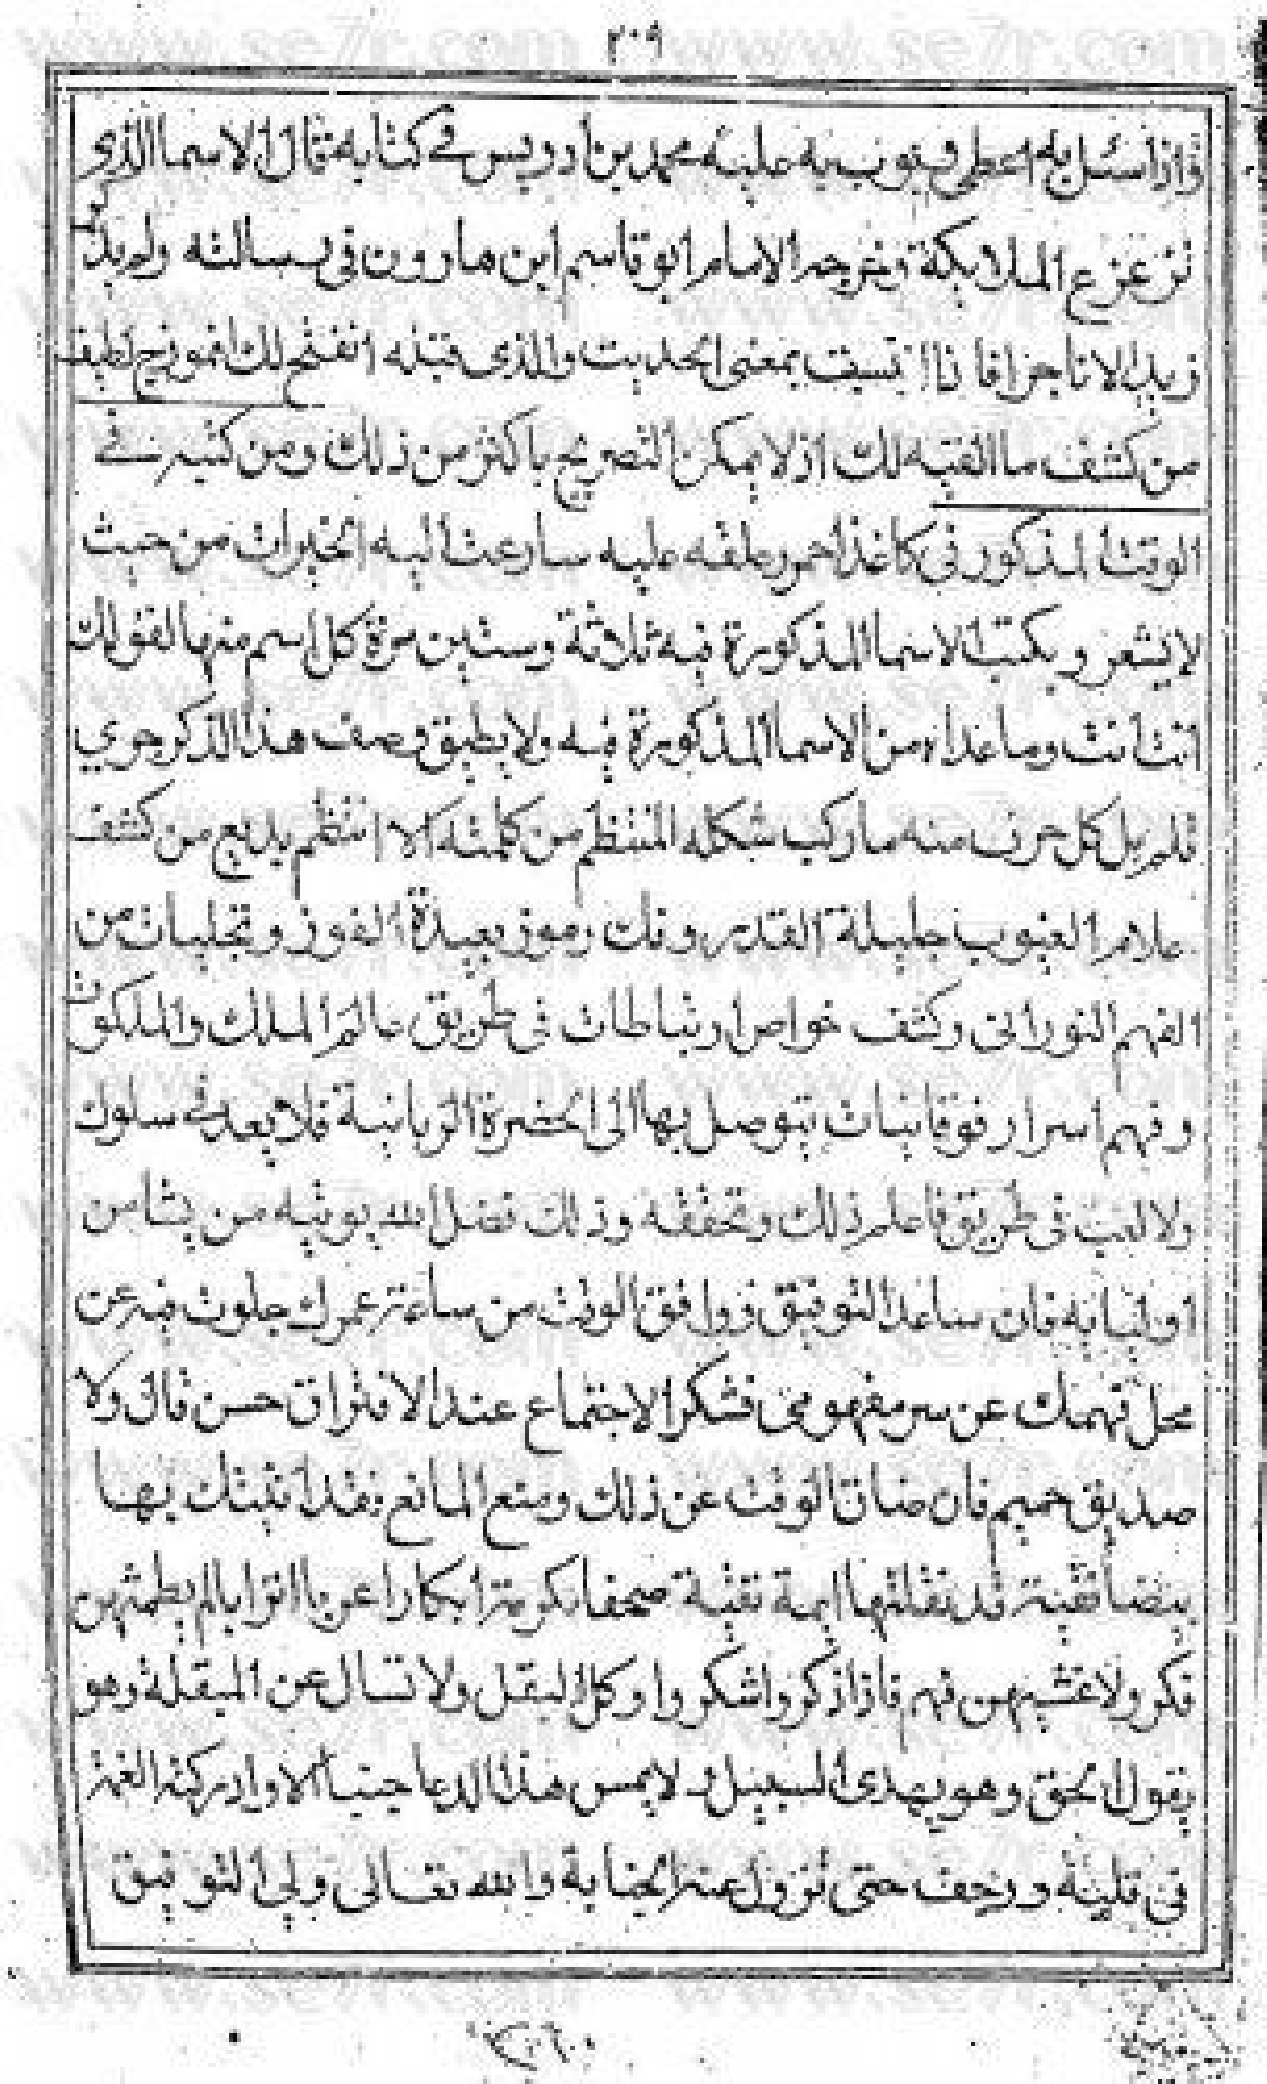 www.se7r.com www.se7r.com
٢٠٩
واذا سئل به اعطى وبوب به عليه محمد بن ادريس في كتابه فقال الاسما الذي
تزعزع الملايكة وخرجه الامام ابو قاسم ابن هارون في رسالته ولم يذكر
زيدا لانا جزافا ذا نسيت بمعنى الحديث والذي قبله انفتح لك انموذج لطيف
من كشف ما القيه لك اذ لا يمكن التصريح باكثر من ذلك ومن كتبه في
الوقت المذكور في كاغذ احمر وعلقه عليه سارعت اليه الخيرات من حيث
لا يشعر ويكتب الاسما المذكورة فيه ثلاثة وستين مرة كل اسم منها لقولك
انت انت وما عداه من الاسما المذكورة فيه ولا يطيق وصف هذا الذكر حوي
قلم بل كل حرف منه ما ركب شكله المنتظم من كلمته الا انتظم بديع من كشف
علام الغيوب جليلة القدر وتلك رموز بعيدة الفوز وتجليات من
الفهم النوراني وكشف خواص ارتباطات في طريق عالم الملك والملكوت
وفهم اسرار فوقانيات يتوصل بها الى الحضرة الربانية فلا بعد في سلوك
ولا لعب في طريق فاعلم ذلك وتحققه وذلك فضل الله يوتيه من يشا من
اوليايه فان ساعد التوفيق ووافق الوقت من ساعة عمرك جلوت فيه عن
محل فهمك عن سر مفهومي فشكر الاجتماع عند الافتراق حسن فاق ولا
صديق حميم فان ضاق الوقت عن ذلك ومنع المانع فقد اتيتك بها
بيضا نقية قد نقلتها ايمة تقية صحفا مكرمة ابكارا عربا اترابا لم يطمثهن
فكر ولا غشيهن فهم فاذا ذكروا اشكروا وكل البقل ولا تسال عن المبقلة وهو
يقول الحق وهو يهدي السبيل ولا يمس هذا الدعا جنبا الا وادركته الغمة
في قلبه ورجف حتى تزول عنه الجنابة والله تعالى ولي التوفيق